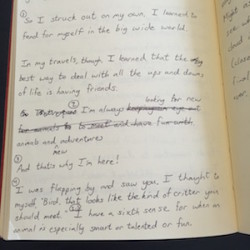 ① So I struck out on my own. I learned to
fend for myself in the big wide world.
In my travels, though, I learned that the
best way to deal with all the ups and downs
of life is having friends.
② looking for new
I'm always
animals and adventures
new
③ And that's why I'm here!
④ I was flapping by and saw you, I thought to
myself, "Bird, that looks like the kind of critter you
should meet." I have a sixth sense for when an
animal is especially smart or talented or fun.